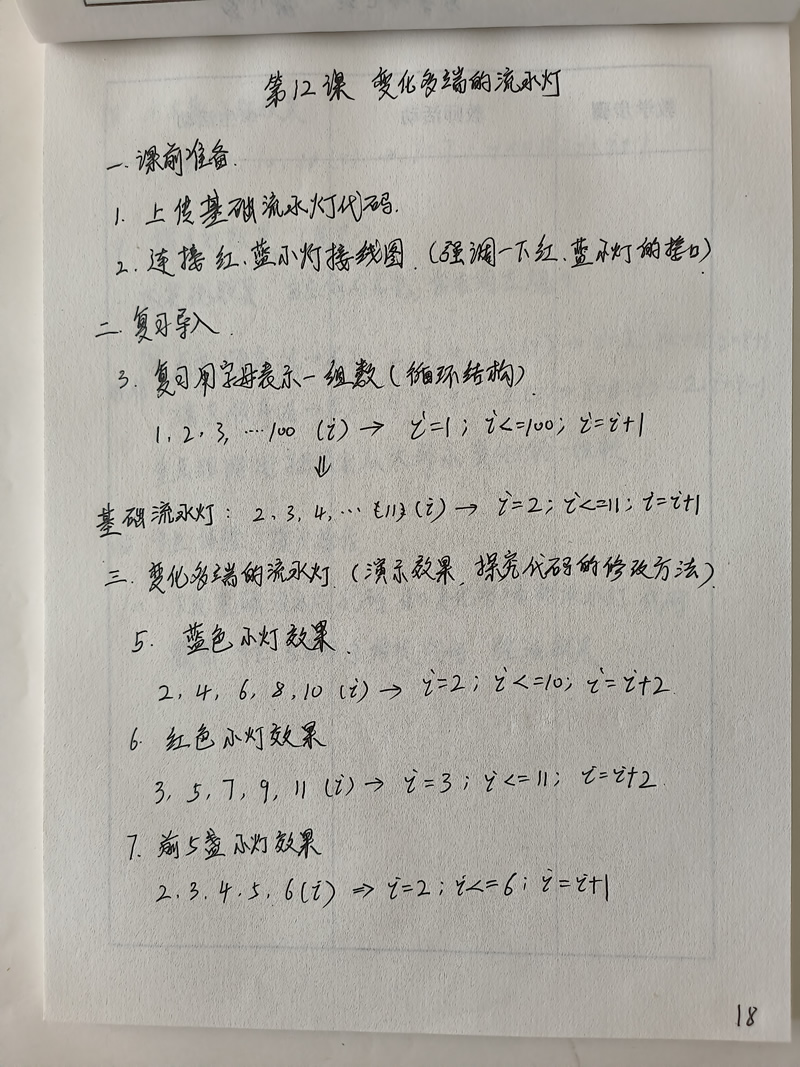 第12课 变化多端的流水灯
一.课前准备.
1. 上传基础流水灯代码.
2. 连接红、蓝小灯接线图.(强调一下红、蓝小灯的接口)
二.复习导入.
3. 复习用字母表示一组数(循环结构).
1, 2, 3, …100 (i) → i=1; i<=100; i=i+1
⇓
基础流水灯: 2, 3, 4, … {11} (i) → i=2; i<=11; i=i+1
三.变化多端的流水灯.(演示效果,探究代码的修改方法)
5. 蓝色小灯效果.
2, 4, 6, 8, 10 (i) → i=2; i<=10; i=i+2
6. 红色小灯效果
3, 5, 7, 9, 11 (i) → i=3; i<=11; i=i+2
7. 前5盏小灯效果
2, 3, 4, 5, 6 (i) ⇒ i=2; i<=6; i=i+1
18